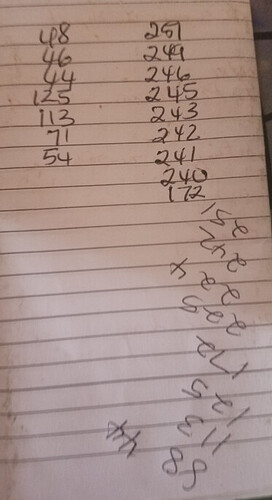 48 251
46 249
44 246
125 245
113 243
71 242
54 241
240
172
172
125
113
88